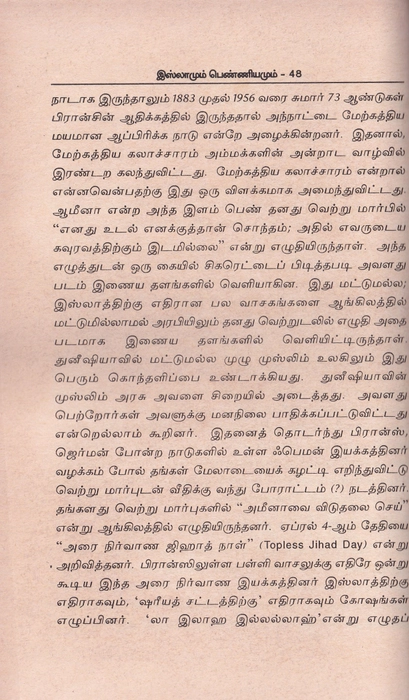 இஸ்லாமும் பெண்ணியமும் - 48
நாடாக இருந்தாலும் 1883 முதல் 1956 வரை சுமார் 73 ஆண்டுகள்
பிரான்சின் ஆதிக்கத்தில் இருந்ததால் அந்நாட்டை மேற்கத்திய
மயமான ஆப்பிரிக்க நாடு என்றே அழைக்கின்றனர். இதனால்,
மேற்கத்திய கலாச்சாரம் அம்மக்களின் அன்றாட வாழ்வில்
இரண்டற கலந்துவிட்டது. மேற்கத்திய கலாச்சாரம் என்றால்
என்னவென்பதற்கு இது ஒரு விளக்கமாக அமைந்துவிட்டது.
ஆமீனா என்ற அந்த இளம் பெண் தனது வெற்று மார்பில்
“எனது உடல் எனக்குத்தான் சொந்தம்; அதில் எவருடைய
கவுரவத்திற்கும் இடமில்லை” என்று எழுதியிருந்தாள். அந்த
எழுத்துடன் ஒரு கையில் சிகரெட்டைப் பிடித்தபடி அவளது
படம் இணைய தளங்களில் வெளியாகின. இது மட்டுமல்ல;
இஸ்லாத்திற்கு எதிரான பல வாசகங்களை ஆங்கிலத்தில்
மட்டுமில்லாமல் அரபியிலும் தனது வெற்றுடலில் எழுதி அதை
படமாக இணைய தளங்களில் வெளியிட்டிருந்தாள்.
துனீஷியாவில் மட்டுமல்ல முழு முஸ்லிம் உலகிலும் இது
பெரும் கொந்தளிப்பை உண்டாக்கியது. துனீஷியாவின்
முஸ்லிம் அரசு அவளை சிறையில் அடைத்தது. அவளது
பெற்றோர்கள் அவளுக்கு மனநிலை பாதிக்கப்பட்டுவிட்டது
என்றெல்லாம் கூறினர். இதனைத் தொடர்ந்து பிரான்ஸ்,
ஜெர்மன் போன்ற நாடுகளில் உள்ள ஃபெமன் இயக்கத்தினர்
வழக்கம் போல் தங்கள் மேலாடையைக் கழட்டி எறிந்துவிட்டு
வெற்று மார்புடன் வீதிக்கு வந்து போராட்டம் (?) நடத்தினர்.
தங்களது வெற்று மார்புகளில் “அமீனாவை விடுதலை செய்”
என்று ஆங்கிலத்தில் எழுதியிருந்தனர். ஏப்ரல் 4-ஆம் தேதியை
“அரை நிர்வாண ஜிஹாத் நாள்” (Topless Jihad Day) என்று
அறிவித்தனர். பிரான்ஸிலுள்ள பள்ளி வாசலுக்கு எதிரே ஒன்று
கூடிய இந்த அரை நிர்வாண இயக்கத்தினர் இஸ்லாத்திற்கு
எதிராகவும், ‘ஷரீயத் சட்டத்திற்கு’ எதிராகவும் கோஷங்கள்
எழுப்பினர். ‘லா இலாஹ இல்லல்லாஹ்’என்று எழுதப்